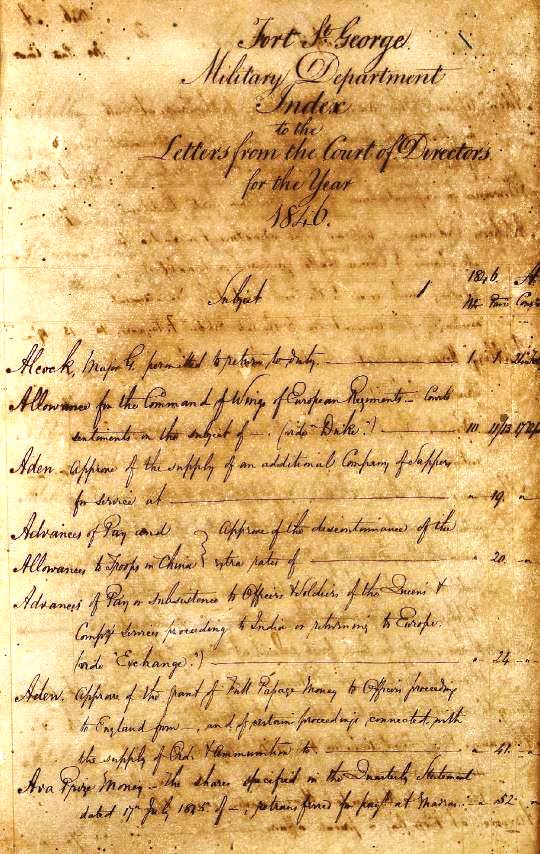 Fort St. George
Military Department
Index
to the
Letters from the Court of Directors
for the Year
1846.
Subject 1 1846.
Alcock, Major G. permitted to return to duty 1 1
Allowance for the Command of Wings of European Regiments - Courts
sentiments on the subject of -. (vide "Duke") 10 11/13
Aden - Approve of the supply of an additional Company of Sappers
for service at " 19 "
Advances of Pay and } Approve of the discontinuance of the
Allowances to Troops in China } extra rates of " 20 "
Advances of Pay or subsistence to Officers & Soldiers of the Queen's &
Compy's Services proceeding to India or returning to Europe.
(vide "Exchange.") " 24 "
Aden. Approve of the grant of Full Passage Money to Officers proceeding
to England from -, and of certain proceedings connected with
the supply of Ord. & Ammunition to " 41 "
Ava Prize Money - The shares specified in the Quarterly Statement
dated 17th July 1845 of -, retransferred for payt. at Madras " 52 "